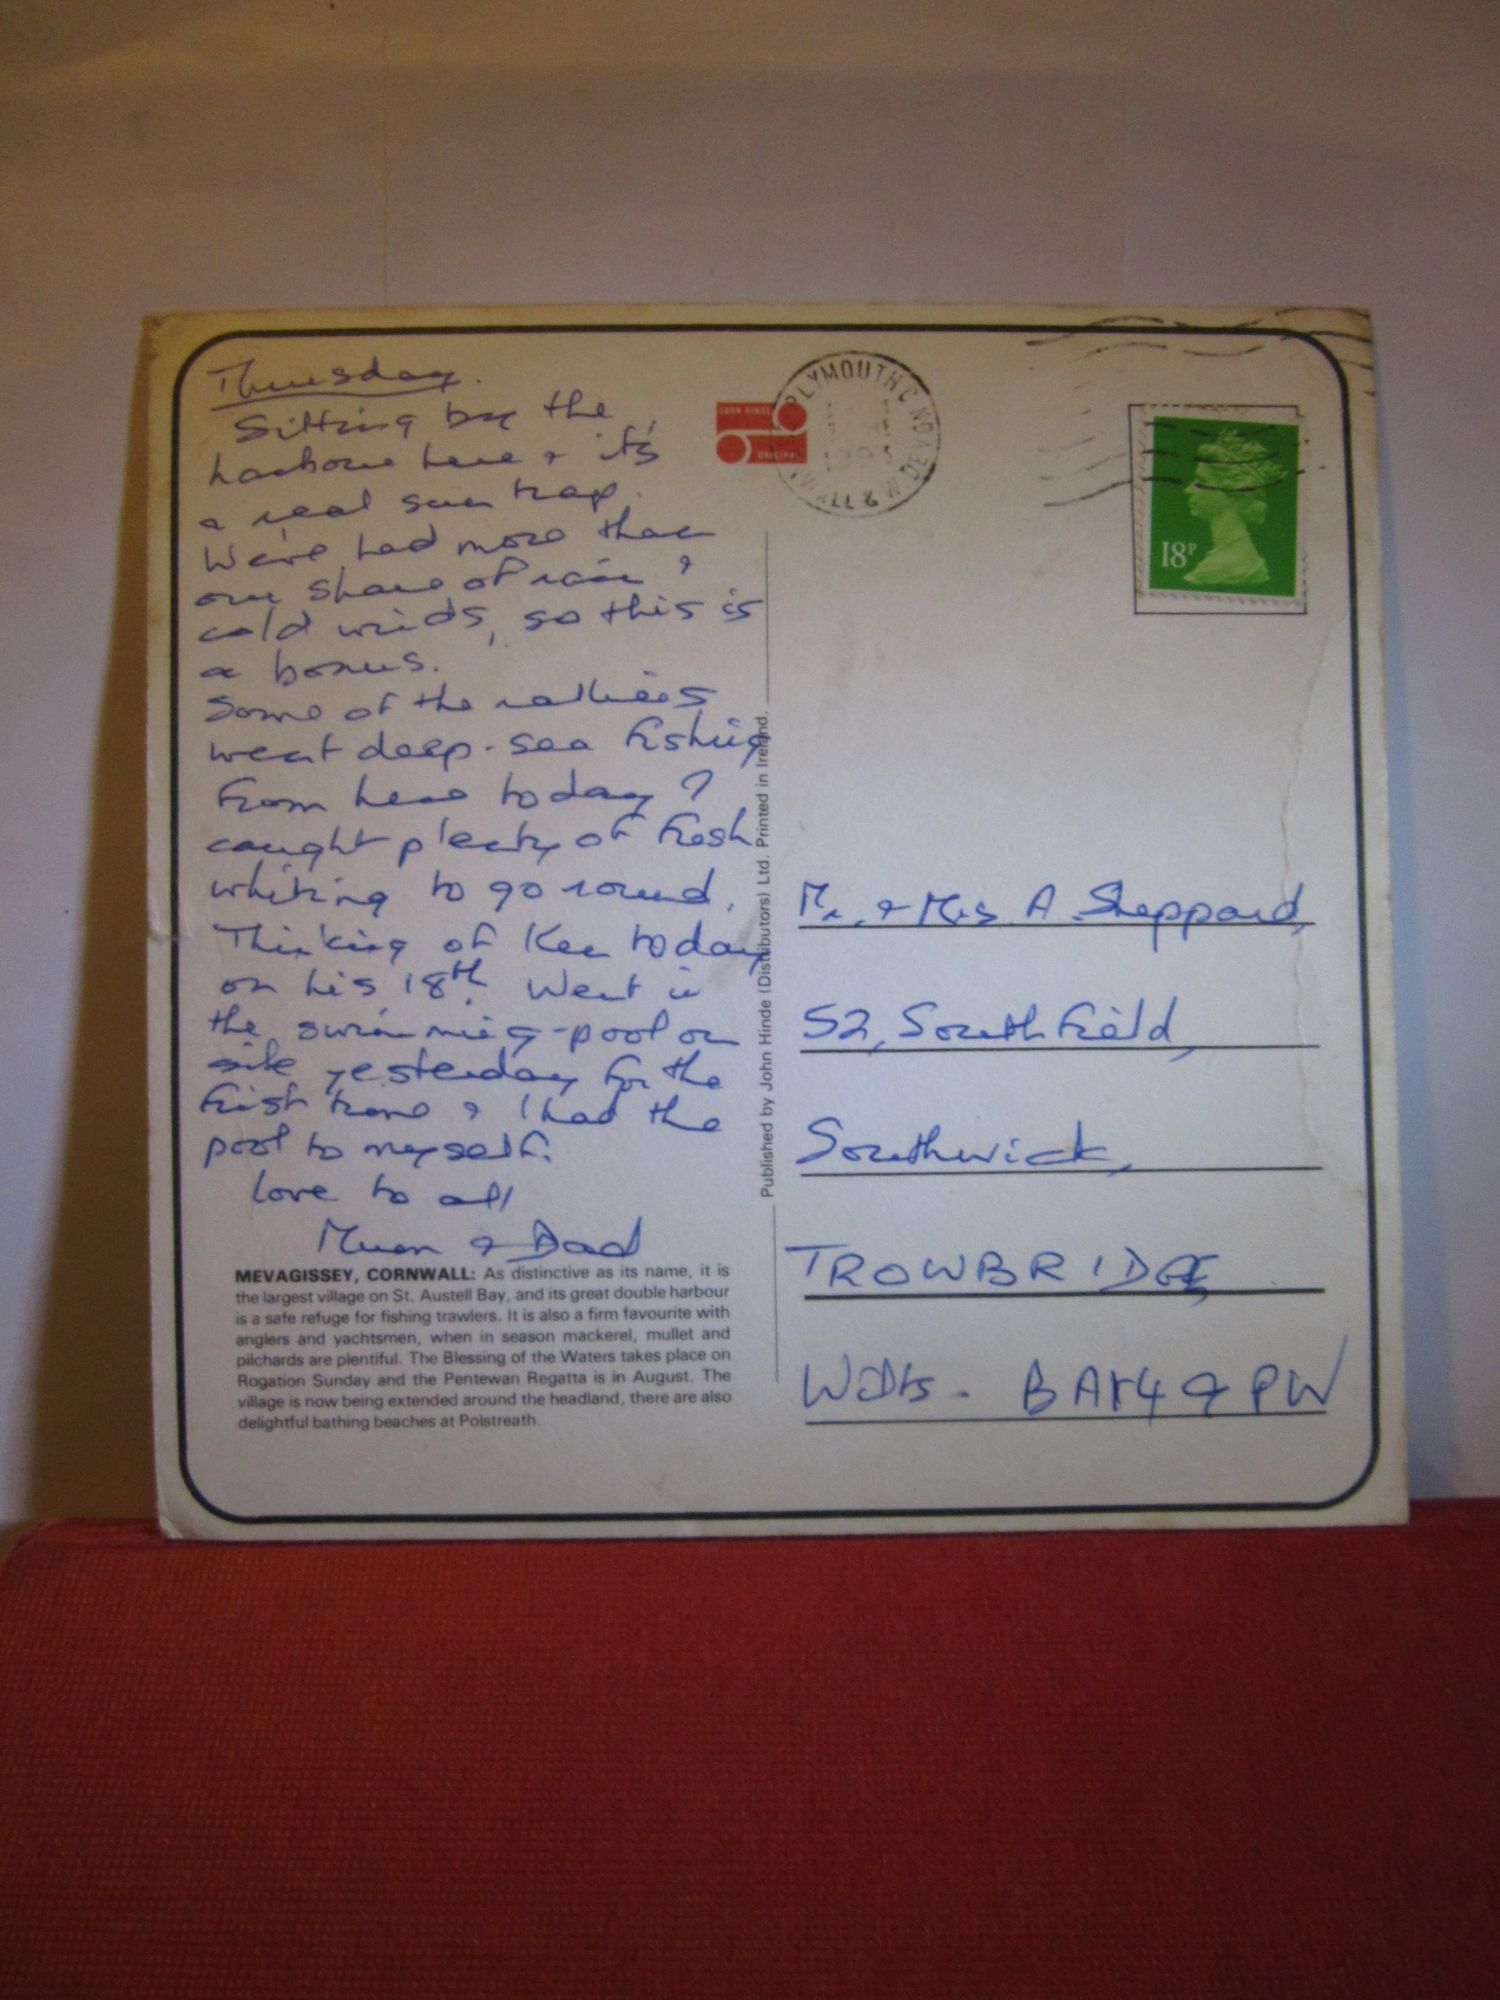 Thursday.
Sitting by the
harbour here & it's
a real sun trap.
We've had more than
our share of rain &
cold winds, so this is
a bonus.
Some of the ralliers
went deep-sea fishing
from here today &
caught plenty of fresh
whiting to go round.
Thinking of Ken today
on his 18th. Went in
the swimming-pool on
site yesterday for the
first time & I had the
pool to myself.
Love to all
Mum & Dad
MEVAGISSEY, CORNWALL: As distinctive as its name, it is
the largest village on St. Austell Bay, and its great double harbour
is a safe refuge for fishing trawlers. It is also a firm favourite with
anglers and yachtsmen, when in season mackerel, mullet and
pilchards are plentiful. The Blessing of the Waters takes place on
Rogation Sunday and the Pentewan Regatta is in August. The
village is now being extended around the headland, there are also
delightful bathing beaches at Polstreath.
Published by John Hinde (Distributors) Ltd. Printed in Ireland.
JOHN HINDE
ORIGINAL
PLYMOUTH
& W DEVON
18P
Mr. & Mrs A Sheppard,
52, Southfield,
Southwick,
TROWBRIDGE
Wilts. BA14 9PW